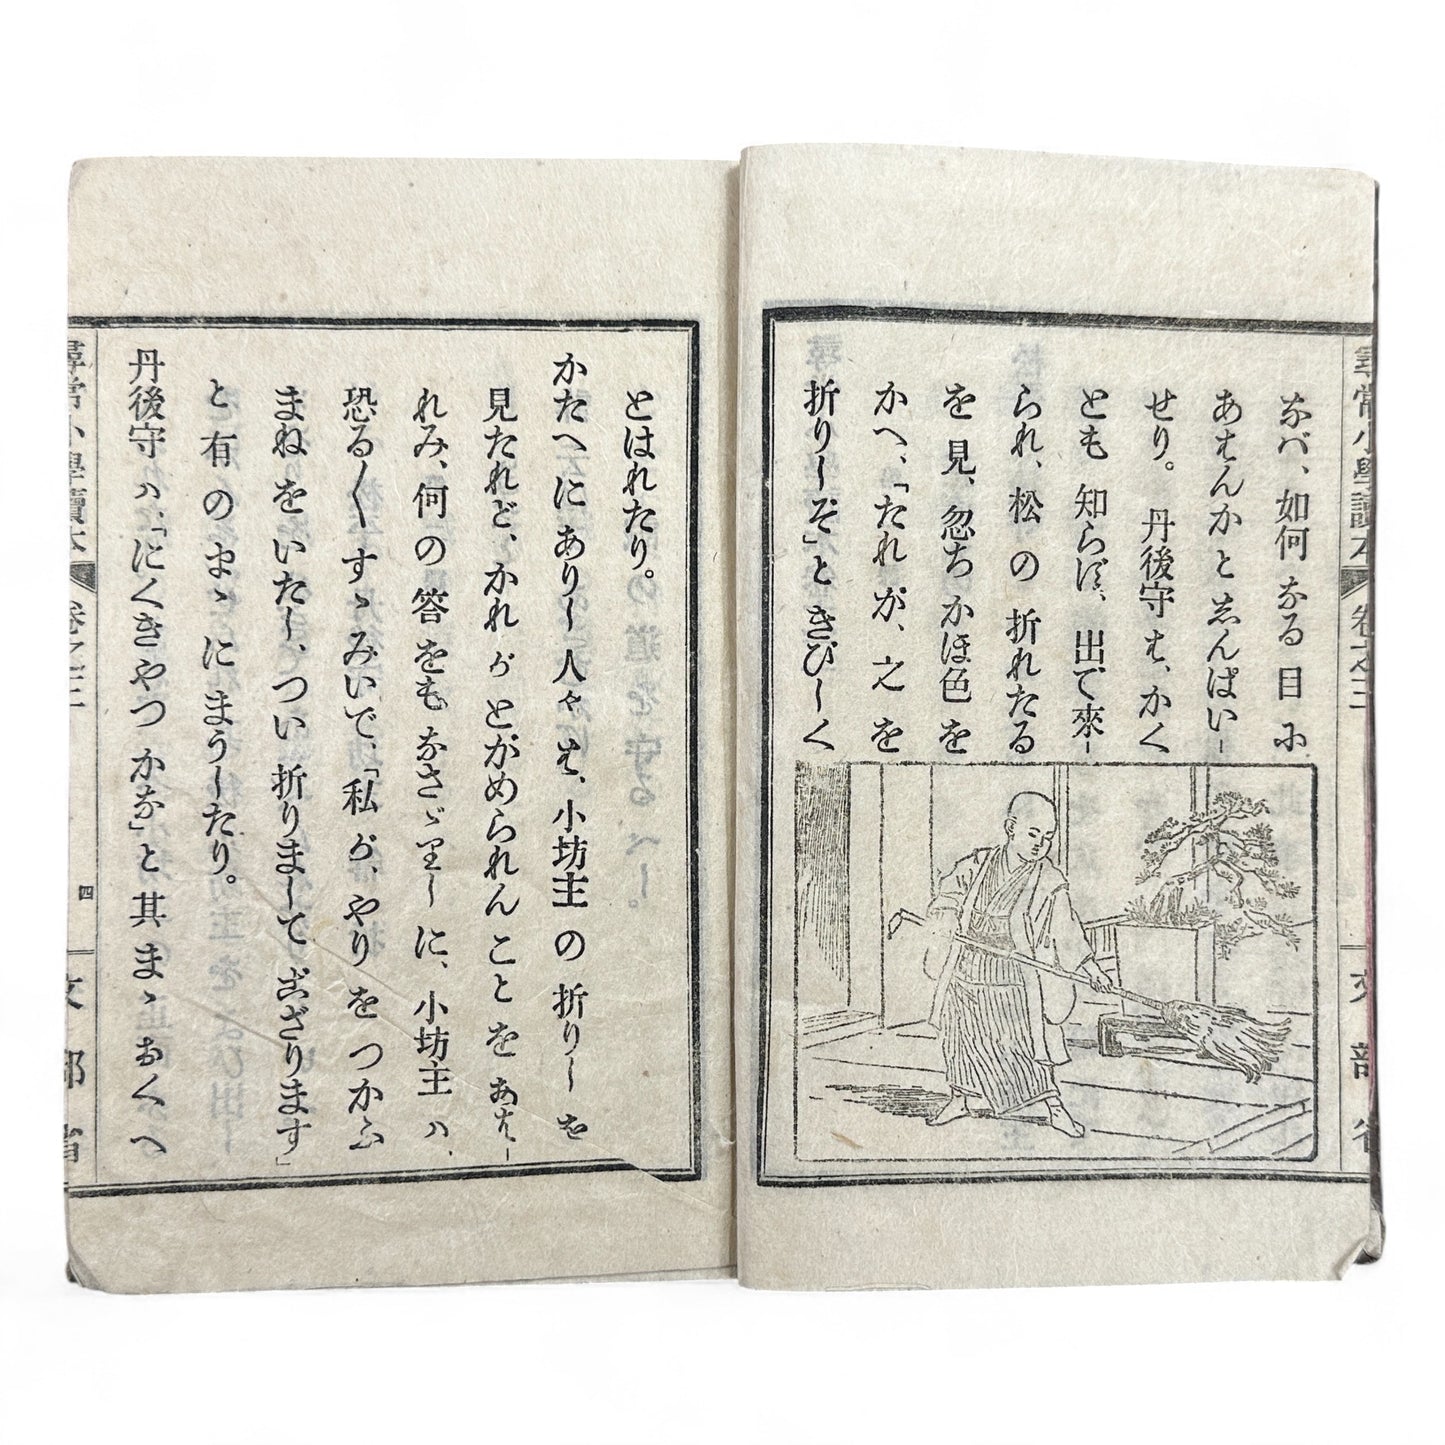 なバ、如何なる目に
あはんかとゑんぱいし
せり。丹後守は、かく
とも知らば、出で來し
られ、松の折れたる
を見、忽ちかほ色を
かへ、「たれが、之を
折りしぞ」ときびしく
とはれたり。
かたへにありし人々は、小坊主の折りしを
見たれど、かれがとがめられんことをあはし
れみ、何の答をもなさゞりしに、小坊主ハ、
恐る〱すゝみいで、「私が、やりをつかふ
まねをいたし、つい折りましてござります」
と有のまゝにまうしたり。
丹後守ハ、「にくきやつかな」と其まゝおくへ
尋常小學讀本
卷之三
四
文部省
尋常小學讀本
卷之三
文部省